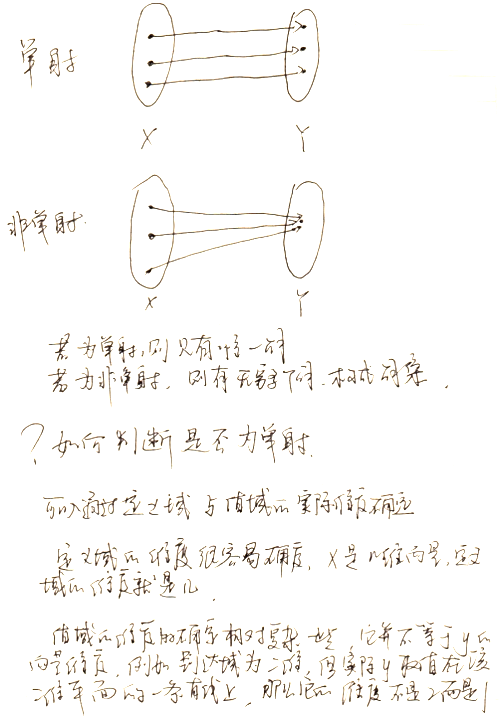 单射
X
Y
非单射.
X
Y
若为单射,则只有唯一解
若为非单射, 则有无穷个解.构成解集.
?如何判断是否为单射.
可以通过定义域与值域的实际维度确定
定义域的维度很容易确定, X是n维向量,定义
域的维度就是n.
值域的维度的确定相对复杂一些, 它并不等于y的
向量维度,例如到达域为二维,但实际y取值在该
二维平面的一条直线上, 那么它的维度不是2而是1